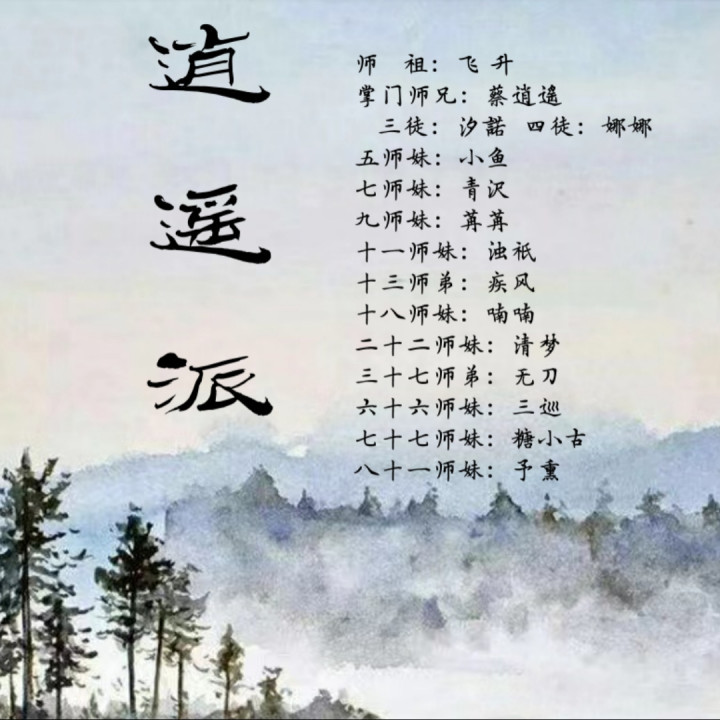 逍
遥
派
师 祖：飞升
掌门师兄：蔡逍遥
三徒：汐諾 四徒：娜娜
五师妹：小鱼
七师妹：青沢
九师妹：苒苒
十一师妹：浊祇
十三师弟：疾风
十八师妹：喃喃
二十二师妹：清梦
三十七师弟：无刀
六十六师妹：三巡
七十七师妹：糖小古
八十一师妹：予熏